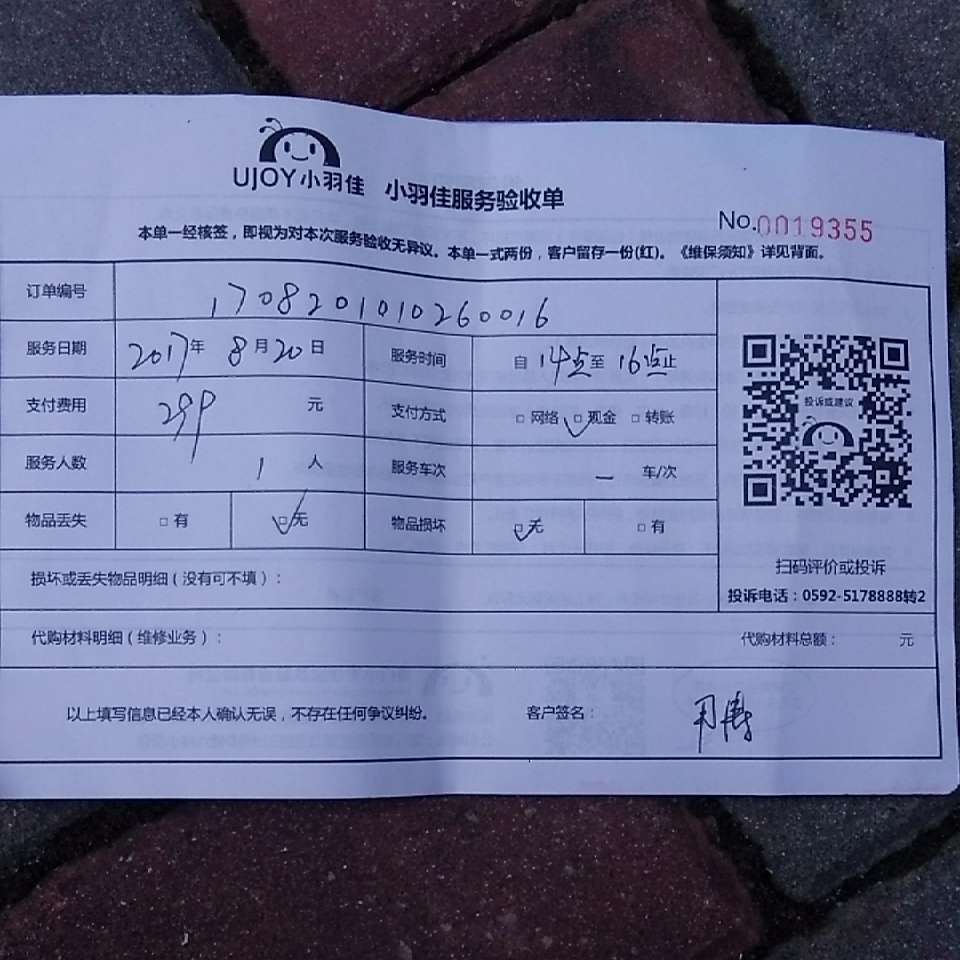 UJOY小羽佳 小羽佳服务验收单
No.0019355
本单一经核签，即视为对本次服务验收无异议。本单一式两份，客户留存一份(红)。《维保须知》详见背面。
订单编号 1708201010260016
服务日期 2017年 8月20日 服务时间 自14点至16点止
支付费用 299 元 支付方式 □网络 □现金 □转账
服务人数 1 人 服务车次 一 车/次
物品丢失 □有 □无 物品损坏 □无 □有
投诉或建议
扫码评价或投诉
投诉电话：0592-5178888转2
损坏或丢失物品明细（没有可不填）：
代购材料明细（维修业务）： 代购材料总额： 元
以上填写信息已经本人确认无误，不存在任何争议纠纷。 客户签名：